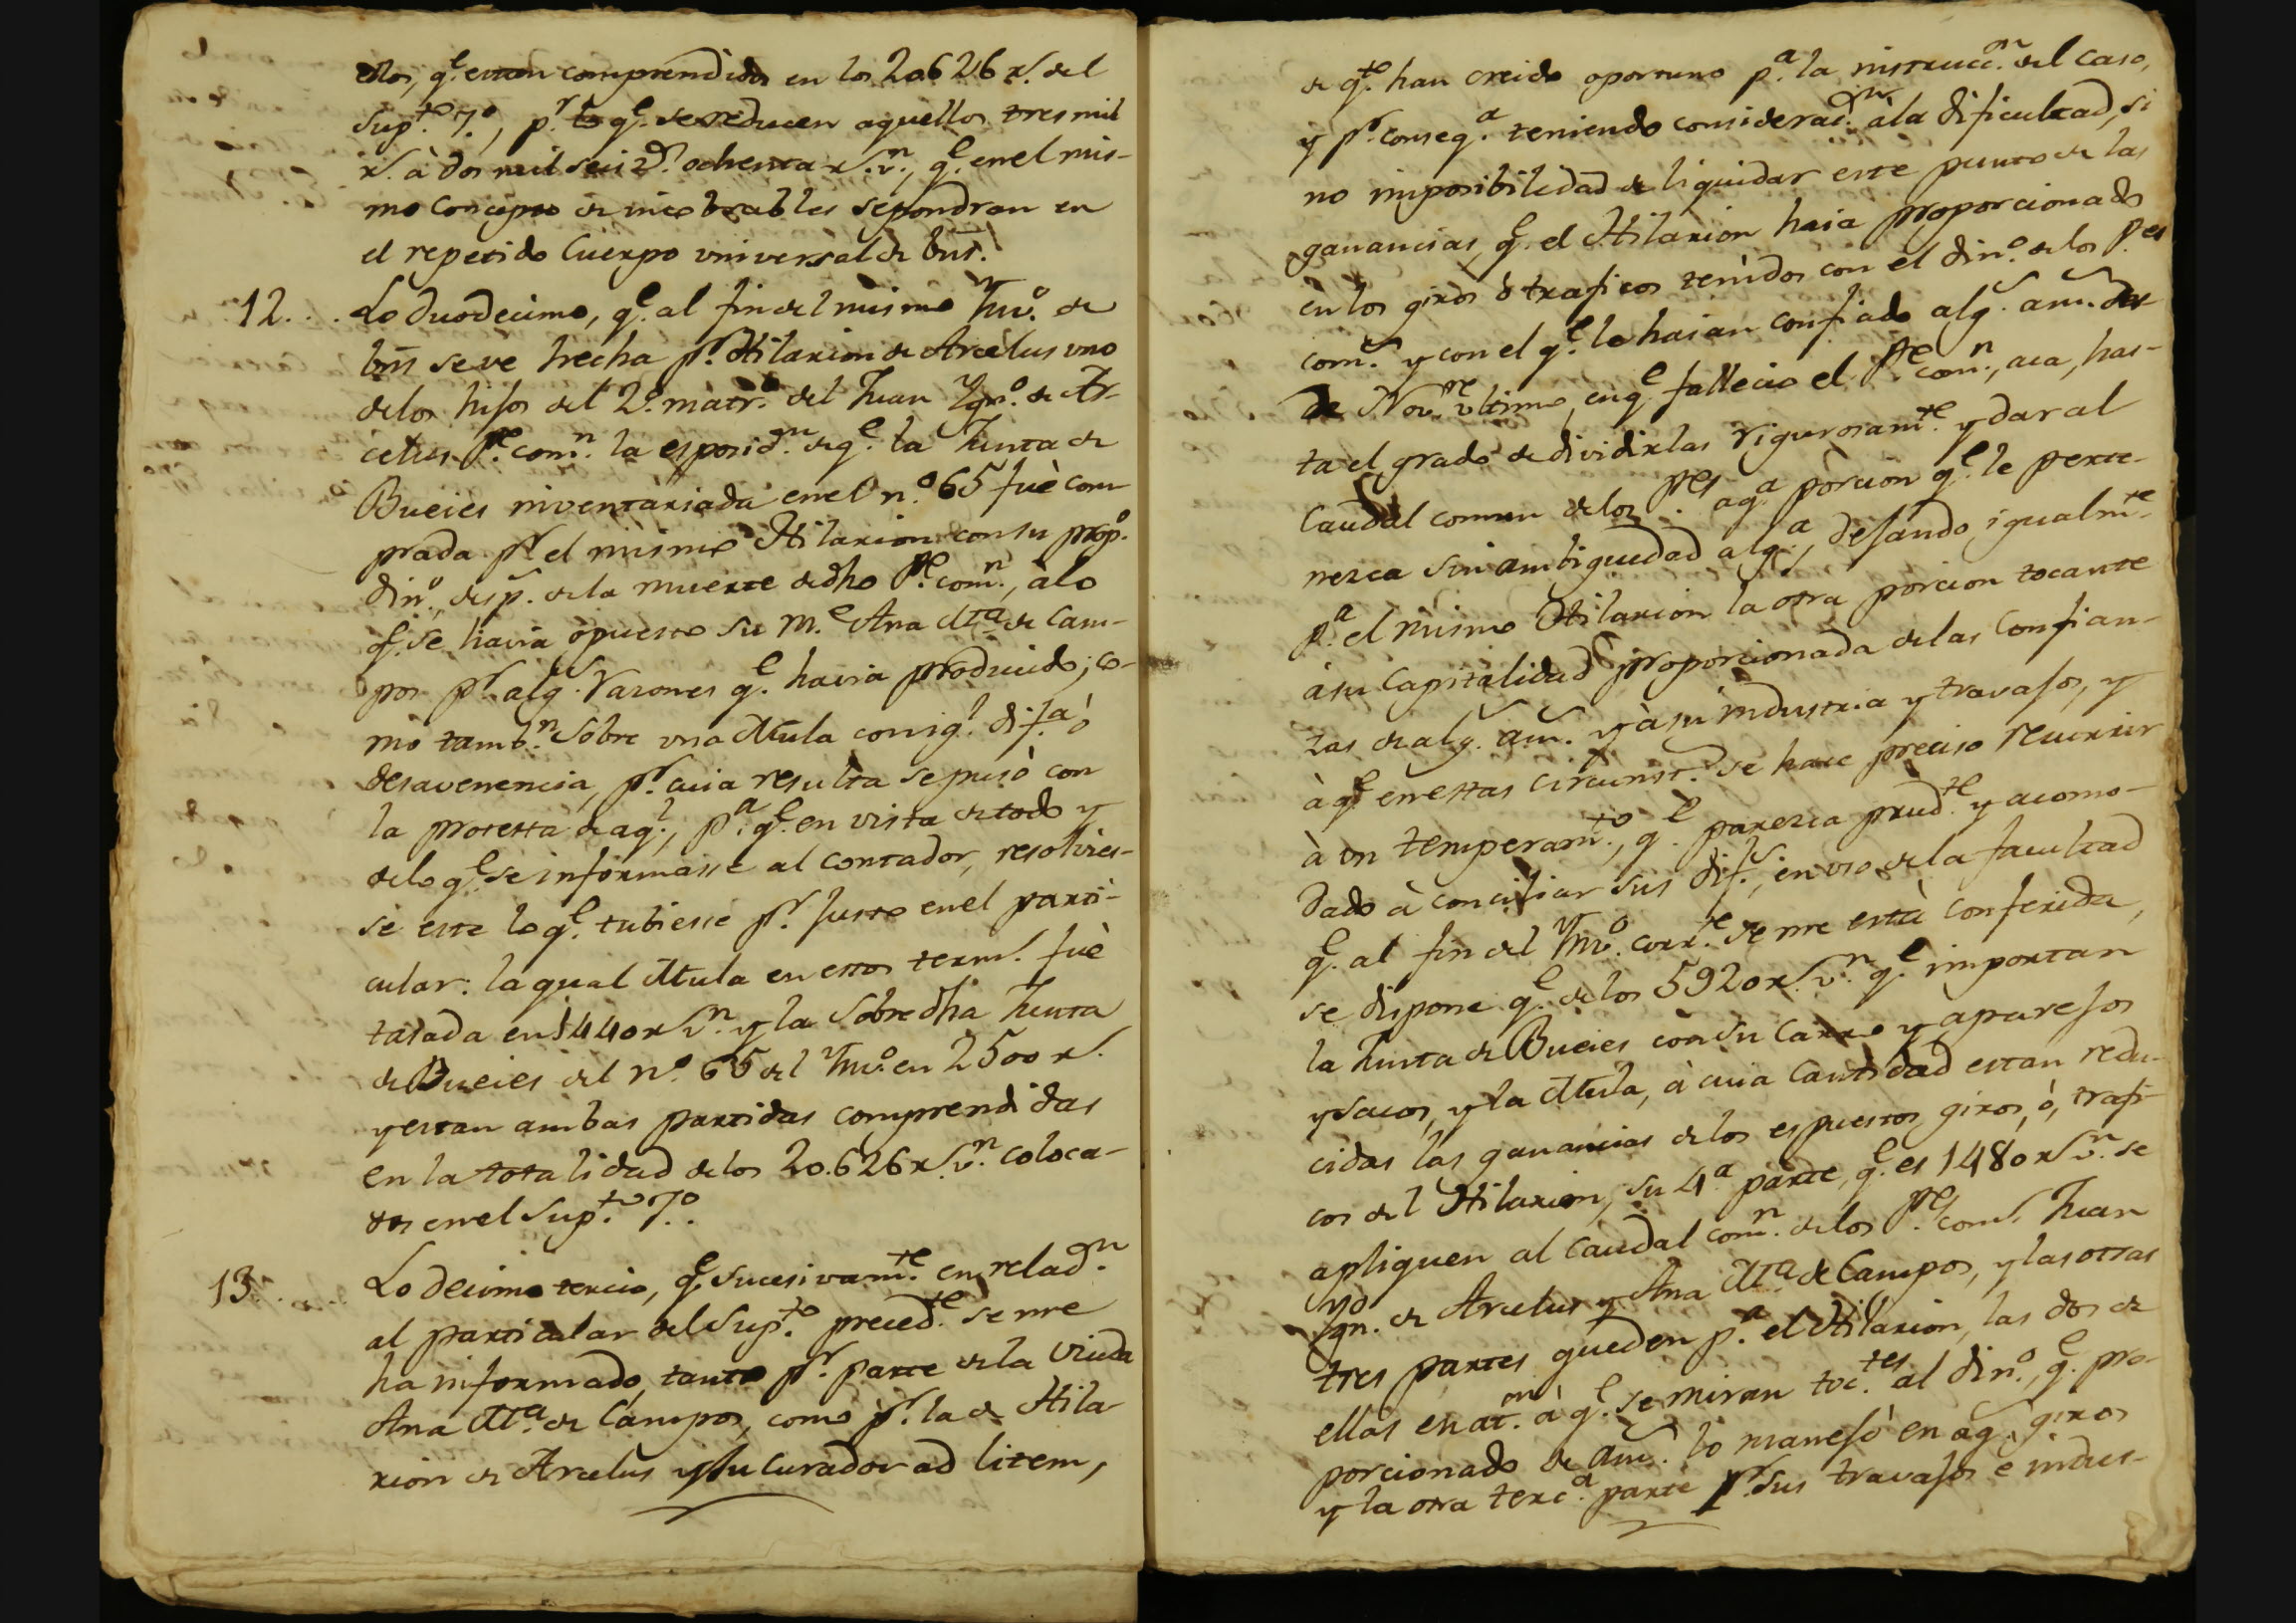 ellos, q.e estan comprendidos en los 20626 r.s del
Sup.to 7.o, p.r lo q.e se reducen aquellos tres mil
r.s à dos mil seis z.s ochenta r.s v.n, q.e en el mis-
mo concepto de incobrables se pondran en
el repetido Cuerpo universal de bns.
12... Lo duodecimo, q.e al fin del mismo Ynv.o de
bns se ve hecha p.r Hilarion de Arcelus uno
de los hijos del 2.o matr.o del Juan Ygn.o de Ar-
celus P.e com.n la esposic.n de q.e la Junta de
Bueies inventariada en el n.o 65 fuè com
prada p.r el mismo Hilarion con su prop.o
din.o, desp.s de la muerte de dho P.e com.n, à lo
q.e se havia opuesto su M.e Ana M.a de Cam-
pos p.r alg.s razones q.e havia producido; co-
mo tamb.n sobre una Mula con ig.l dif.a ò
desavenencia, p.r cuia resulta se puso con
la protesta de aq.l, p.a q.e en vista de todo y
de lo q.e se informasse al contador, resolvies-
se este lo q.e tubiesse p.r justo en el parti-
cular: la qual Mula en estos term.s fuè
tasada en 1440 r.s v.n y la sobre dha Junta
de Bueies del n.o 65 del Ynv.o en 2500 r.s
y estan ambas partidas comprendidas
en la totalidad de los 20.626 r.s v.n coloca-
dos en el Sup.to 7.o
13... Lo decimo tercio, q.e sucesivam.te en relac.n
al particular del Sup.to preced.te se me
ha informado, tanto p.r parte de la Viuda
Ana M.a de Campos, como p.r la de Hila-
rion de Arcelus y su Curador ad litem,
de q.to han creido oportuno p.a la instrucc.n del caso,
y p.r conseq.a teniendo considerac.n à la dificultad, si
no imposibilidad de liquidar este punto de las
ganancias, q.e el Hilarion haia proporcionado
en los giros ò traficos tenidos con el din.o de los P.es
com.s y con el q.e le haian confiado alg.s am.s des-
de Nov.re ultimo, en q.e fallecio el P.e com.n, aca, has-
ta el grado de dividirlas rigurosam.te y dar al
Caudal comun de los P.es aq.a porcion q.e le perte-
nezca sin ambiguedad alg.a, dejando igualm.te
p.a el mismo Hilarion la otra porcion tocante
à su Capitalidad proporcionada de las Confian-
zas de alg.s am.s y à su industria y travajos, y
à q.e en estas circunst.s se hace preciso recurrir
à un temperam.to, q.e parezca prud.te y acomo-
dado à conciliar sus dif.s, en uso de la facultad
q.e al fin del Ynv.o corr.te se me està conferida,
se dispone q.e de los 5920 r.s v.n q.e importan
la Junta de Bueies con su Carro y aparejos
y sacos, y la Mula, à cuia Cantidad estan redu-
cidas las ganancias de los espuestos giros, ò, trafi-
cos del Hilarion, su 4.a parte, q.e es 1480 r.s v.n se
apliquen al Caudal com.n de los P.es com.s Juan
Ygn.o de Arcelus y Ana M.a de Campos, y las otras
tres partes queden p.a el Hilarion, las dos de
ellas en at.on à q.e se miran toc.tes al din.o, q.e pro-
porcionado de am.s lo manejò en aq.s giros
y la otra terc.a parte p.r sus travajos è indus-